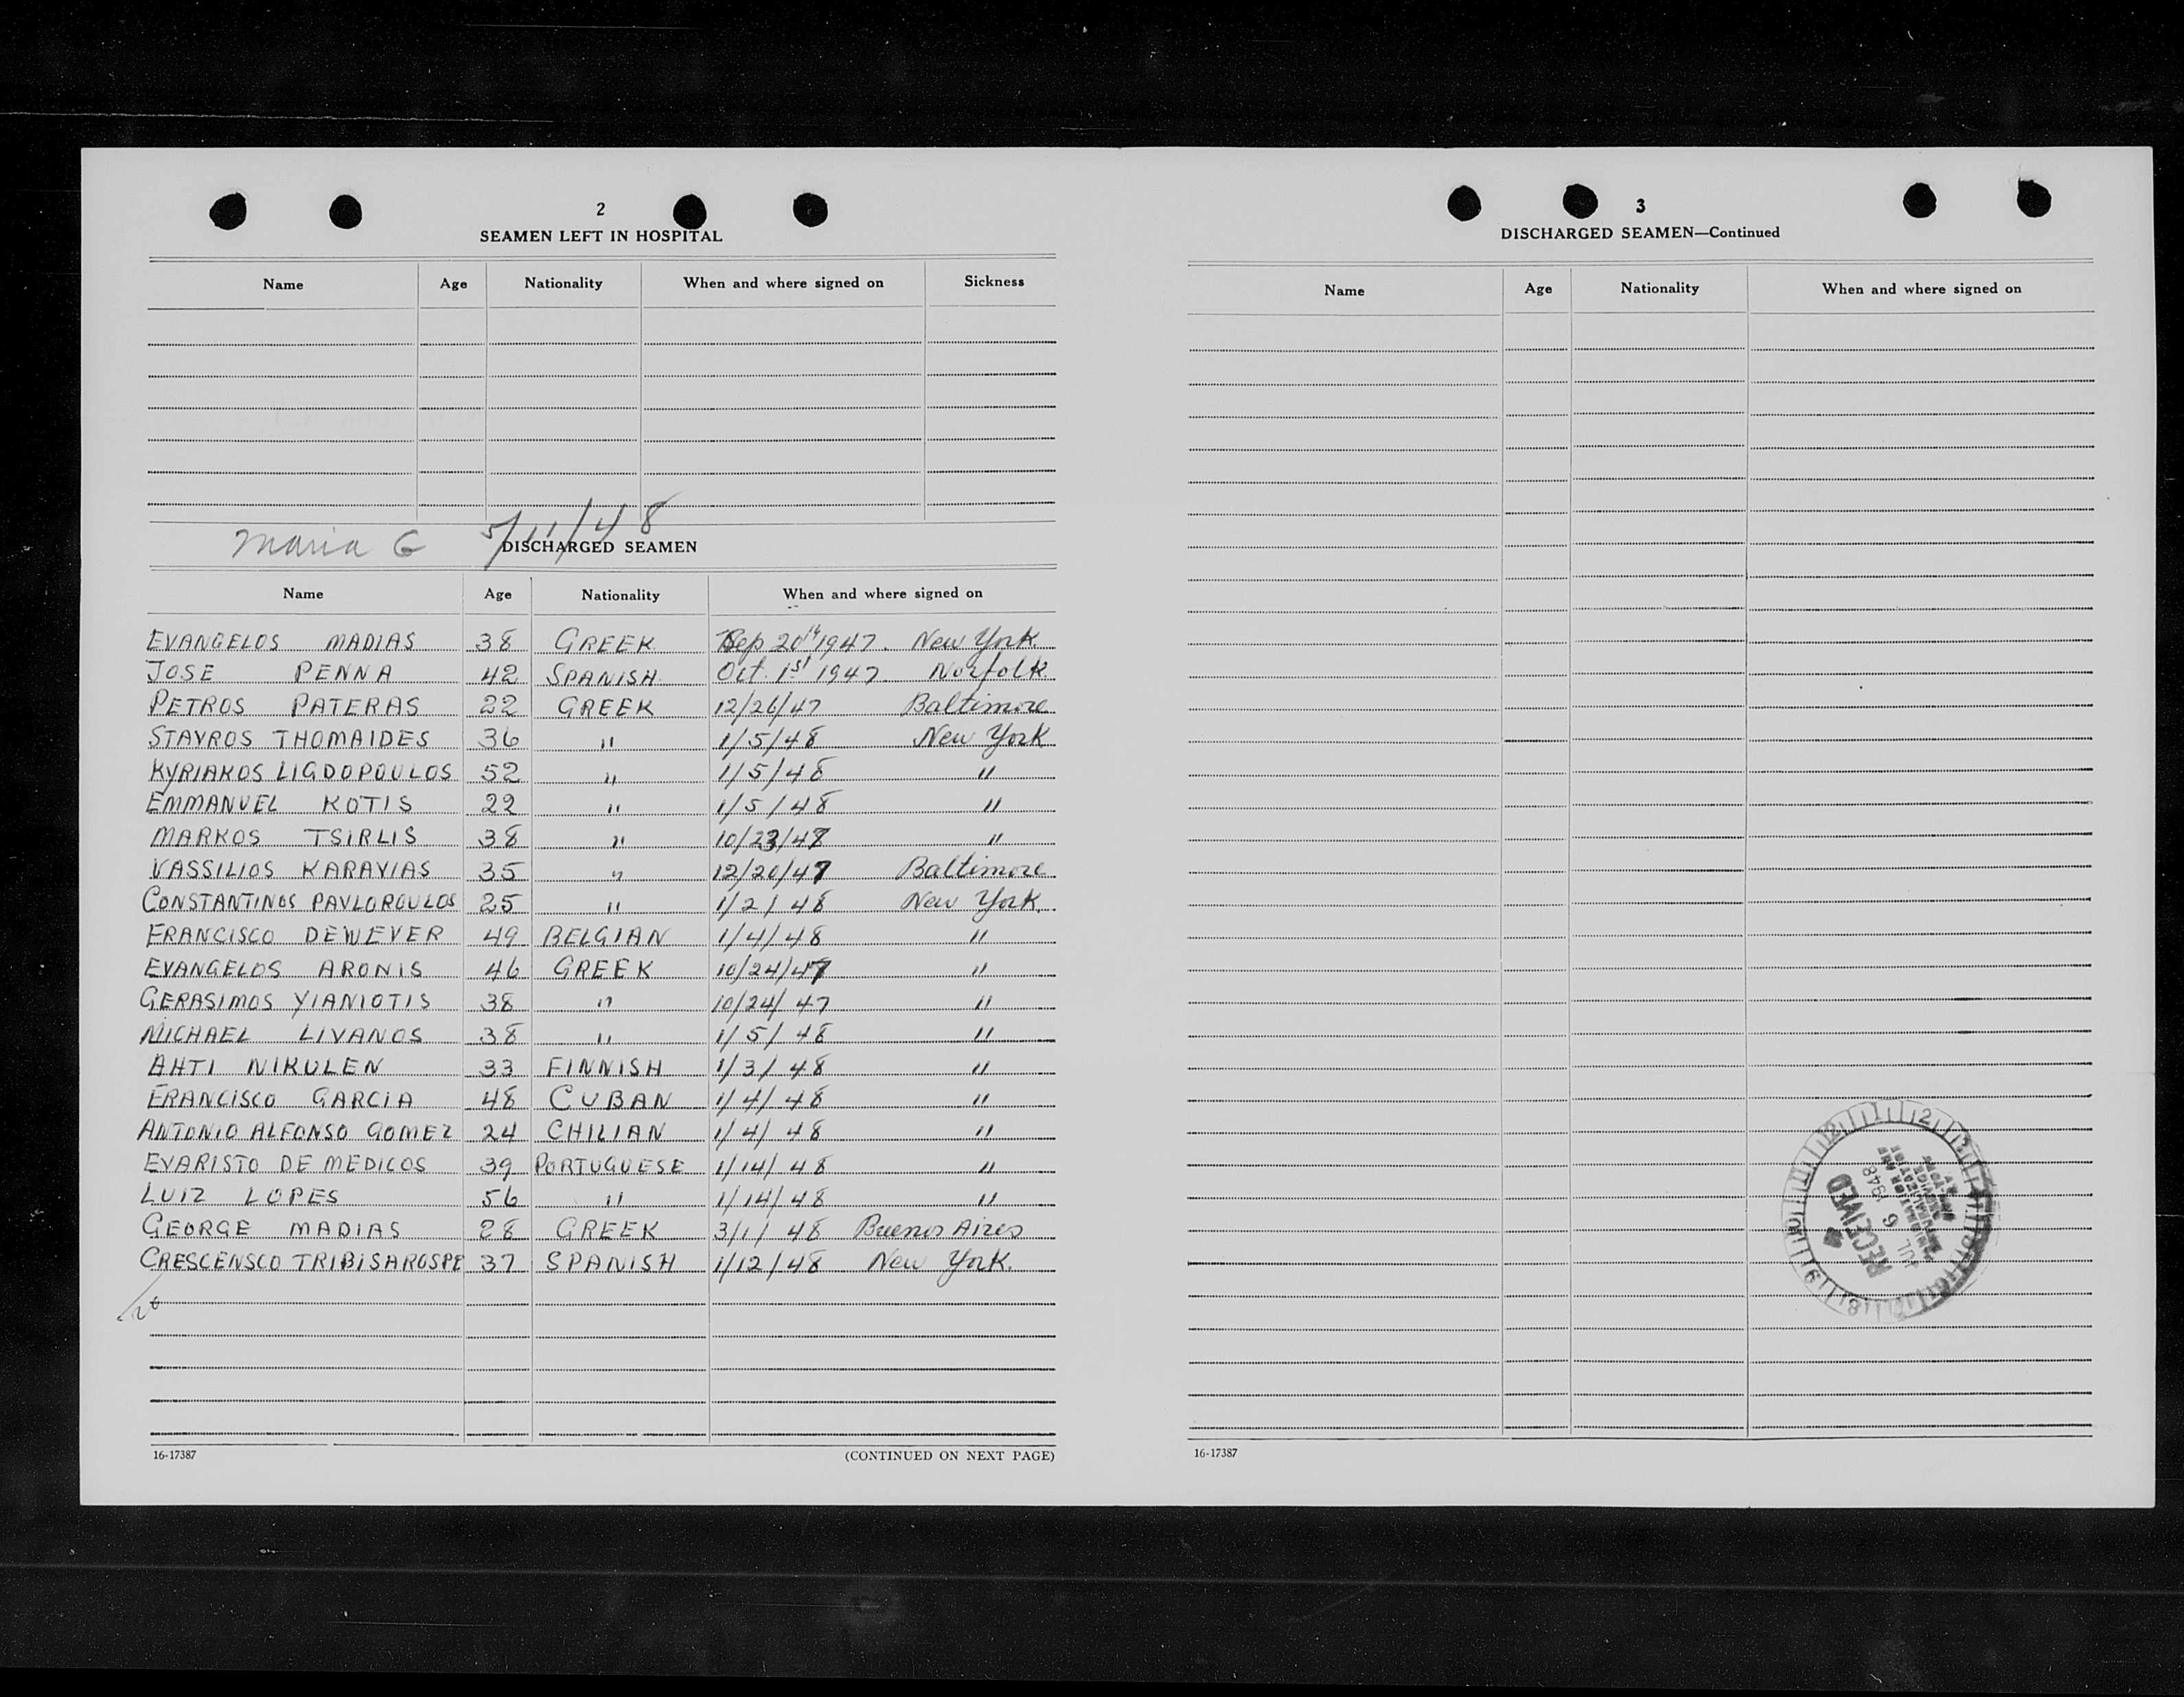 2
SEAMEN LEFT IN HOSPITAL
Name Age Nationality When and where signed on Sickness
Maria G 5/11/48
DISCHARGED SEAMEN
Name Age Nationality When and where signed on
EVANGELOS MADIAS 38 GREEK Sep 20th 1947. New York.
JOSE PENNA 42 SPANISH Oct. 1st 1947. Norfolk
PETROS PATERAS 22 GREEK 12/26/47 Baltimore
STAVROS THOMAIDES 36 " 1/5/48 New York
KYRIAKOS LIGDOPOULOS 52 " 1/5/48 "
EMMANUEL KOTIS 22 " 1/5/48 "
MARKOS TSIRLIS 38 " 10/23/47 "
VASSILIOS KARAVIAS 35 " 12/20/47 Baltimore
CONSTANTINOS PAVLOPOULOS 25 " 1/2/48 New York.
FRANCISCO DEWEVER 49 BELGIAN 1/4/48 "
EVANGELOS ARONIS 46 GREEK 10/24/47 "
GERASIMOS YIANIOTIS 38 " 10/24/47 "
MICHAEL LIVANOS 38 " 1/5/48 "
AHTI NIKULEN 33 FINNISH 1/3/48 "
FRANCISCO GARCIA 48 CUBAN 1/4/48 "
ANTONIO ALFONSO GOMEZ 24 CHILIAN 1/4/48 "
EVARISTO DE MEDICOS 39 PORTUGUESE 1/14/48 "
LUIZ LOPES 56 " 1/14/48 "
GEORGE MADIAS 28 GREEK 3/1/48 Buenos Aires
CRESCENSCO TRIBISAROSPE 37 SPANISH 1/12/48 New York.
16-17387 (CONTINUED ON NEXT PAGE)
3
DISCHARGED SEAMEN—Continued
Name Age Nationality When and where signed on
RECEIVED
JUL 6 1948
16-17387